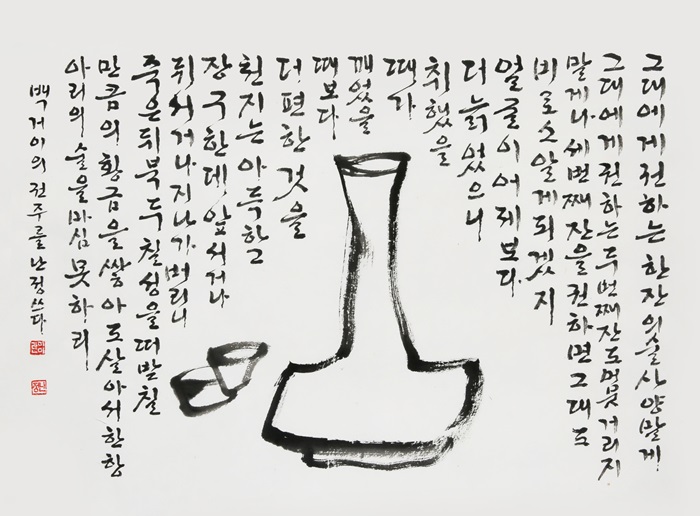 그대에게권하는 한잔의술사양말게
그대에게권하는두번째잔도머뭇거리지
말게나세번째잔을권하면그대도
비로소알게되겠지
얼굴이어제보다
더늙었으니
취했을
때가
깨었을
때보다
더편한것을
천지는아득하고
장구한데앞서거나
뒤서거나지나가버리니
죽은뒤북두칠성을떠받칠
만큼의황금을쌓아도살아서한항
아리의술을마심못하리
백거이의권주를난정쓰다